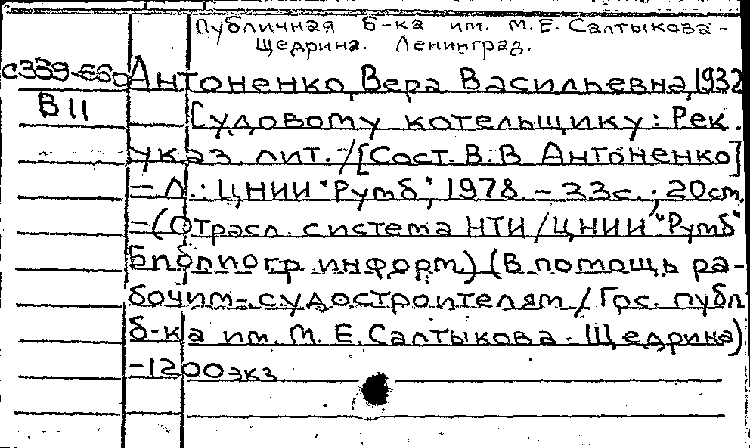 Публичная б-ка им. М.Е. Салтыкова-
Щедрина. Ленинград.
Антоненко, Вера Васильевна, 1932
В11
Судовому котельщику: Рек.
указ. лит. / [Сост. В.В Антоненко]
= Л.: ЦНИИ "Румб", 1978. - 33с.; 20см.
=(Отрасл. система НТИ/ЦНИИ "Румб"
Библиогр. информ.) (В помощь ра-
бочим-судостроителям / Гос. публ
б-ка им. М. Е. Салтыкова-Щедрина)
-1200экз